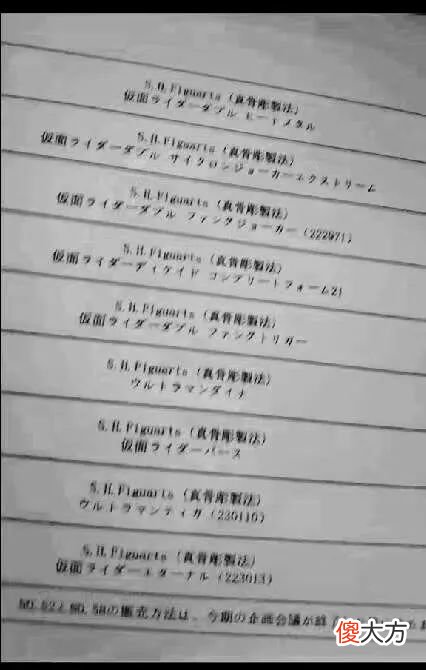 S.H.Figuarts（真骨彫製法）
仮面ライダーダブル ヒートメタル
S.H.Figuarts（真骨彫製法）
仮面ライダーダブル サイクロンジョーカーエクストリーム
S.H.Figuarts（真骨彫製法）
仮面ライダーダブル ファングジョーカー（222971）
S.H.Figuarts（真骨彫製法）
仮面ライダーディケイド コンプリートフォーム21
S.H.Figuarts（真骨彫製法）
仮面ライダーダブル ファングトリガー
S.H.Figuarts（真骨彫製法）
ウルトラマンダイナ
S.H.Figuarts（真骨彫製法）
仮面ライダーバース
S.H.Figuarts（真骨彫製法）
ウルトラマンティガ（230110）
S.H.Figuarts（真骨彫製法）
仮面ライダーエターナル（223013）
の販売方法は、今期の企画会議が終
傻大方